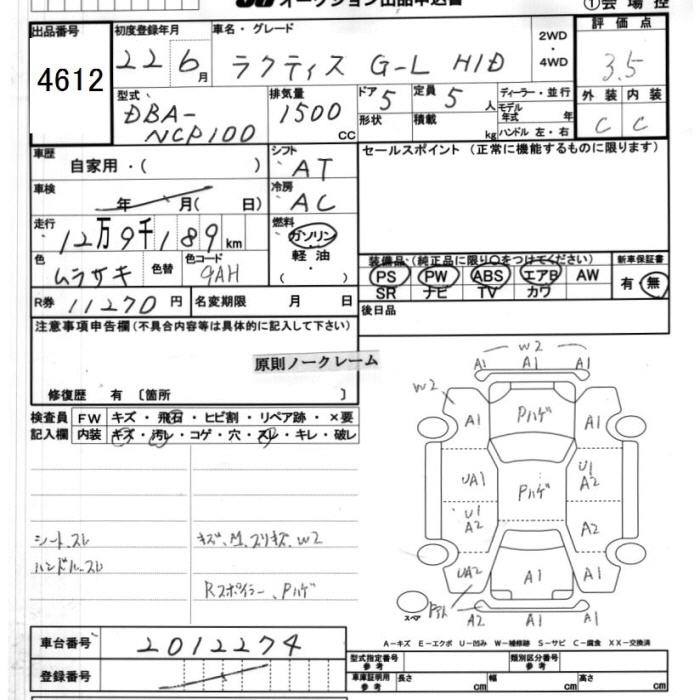 オークション出品申込書
① 会場控
出品番号 4612
初度登録年月 22 6月
車名・グレード ラクティス G-L HID
2WD・4WD
評価点 3.5
型式 DBA-NCP100
排気量 1500 CC
ドア 5
形状
定員 5 人
積載 kg
ディーラー・並行
モデル年式 年
ハンドル 左・右
外装 C
内装 C
車歴 自家用・( )
シフト AT
セールスポイント (正常に機能するものに限ります)
車検 年 月( 日)
冷房 AC
走行 12万9千189km
燃料 ガソリン・軽油・( )
色 ムラサキ 色替
色コード 9AH
装備品 (純正品に限り○をつけてください)
新車保証書
PS PW ABS エアB AW
有・無
SR ナビ TV カワ
R券 11270円
名変期限 月 日
後日品
注意事項申告欄 (不具合内容等は具体的に記入して下さい)
原則ノークレーム
修復歴 有 〔箇所 〕
検査員記入欄
FW キズ・飛石・ヒビ割・リペア跡・×要
内装 キズ・汚レ・コゲ・穴・スレ・キレ・破レ
シート、スレ
ハンドル、スレ
キズ、M、スリキズ、W2
Rスポイラー、Pハゲ
W2
A1 A1 A1
W2
A1 Pハゲ A1
UA1 Pハゲ U1 A2
U1 A2 A2
UA2 A1 A1
スペア
A2 A1 A1
A-キズ E-エクボ U-凹み W-補修跡 S-サビ C-腐食 XX-交換済
車台番号 2012274
登録番号
型式指定番号 参考
類別区分番号 参考
車庫証明用 参考 長さ cm 幅 cm 高さ cm